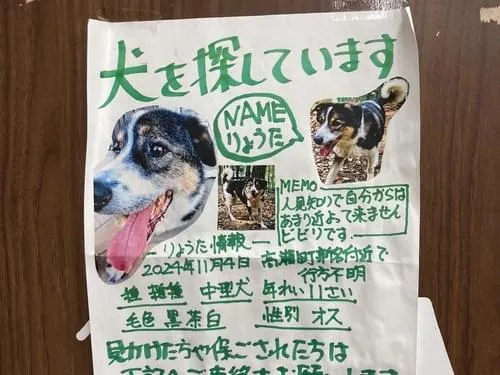 犬を探しています
NAME
りょうた
MEMO
人見知りで自分からは
あまり近よって来ません
ビビりです。
りょうた情報
2024年11月4日
高瀬町新名付近で
行方不明
種 雑種 中型犬
年れい 11さい
毛色 黒茶白
性別 オス
見かけたちゃ保ごされたちは
下記へご連絡をお願いします